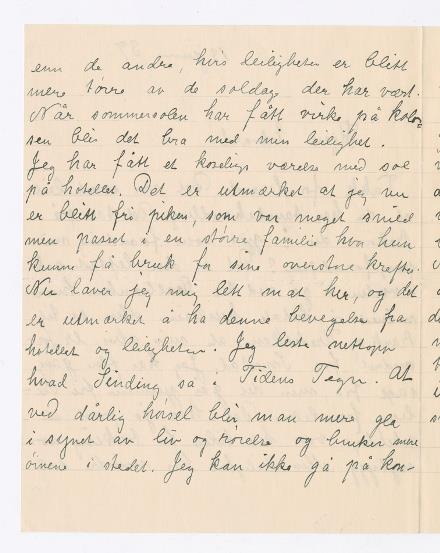 enn de andre, hvis leiligheten er blitt
mere tørre av de soldage der har vært.
Når sommersolen har fått virke på kolos=
sen blir det bra med min leilighet.
Jeg har fått et koselig værelse med sol
på hotellet. Det er utmærket at jeg nu
er blitt fri piken, som var meget snild
men passet i en større familie hvor hun
kunne få bruk for sine overstore krefter.
Nu laver jeg mig lett mat her, og det
er utmærket å ha denne bevegelse fra
hotellet og leiligheten. Jeg leste nettopp
hvad Sinding sa i Tidens Tegn. At
ved dårlig hørsel blir man mere gla
i synet av liv og rørelse og bruker mere
øinene i stedet. Jeg kan ikke gå på kon-